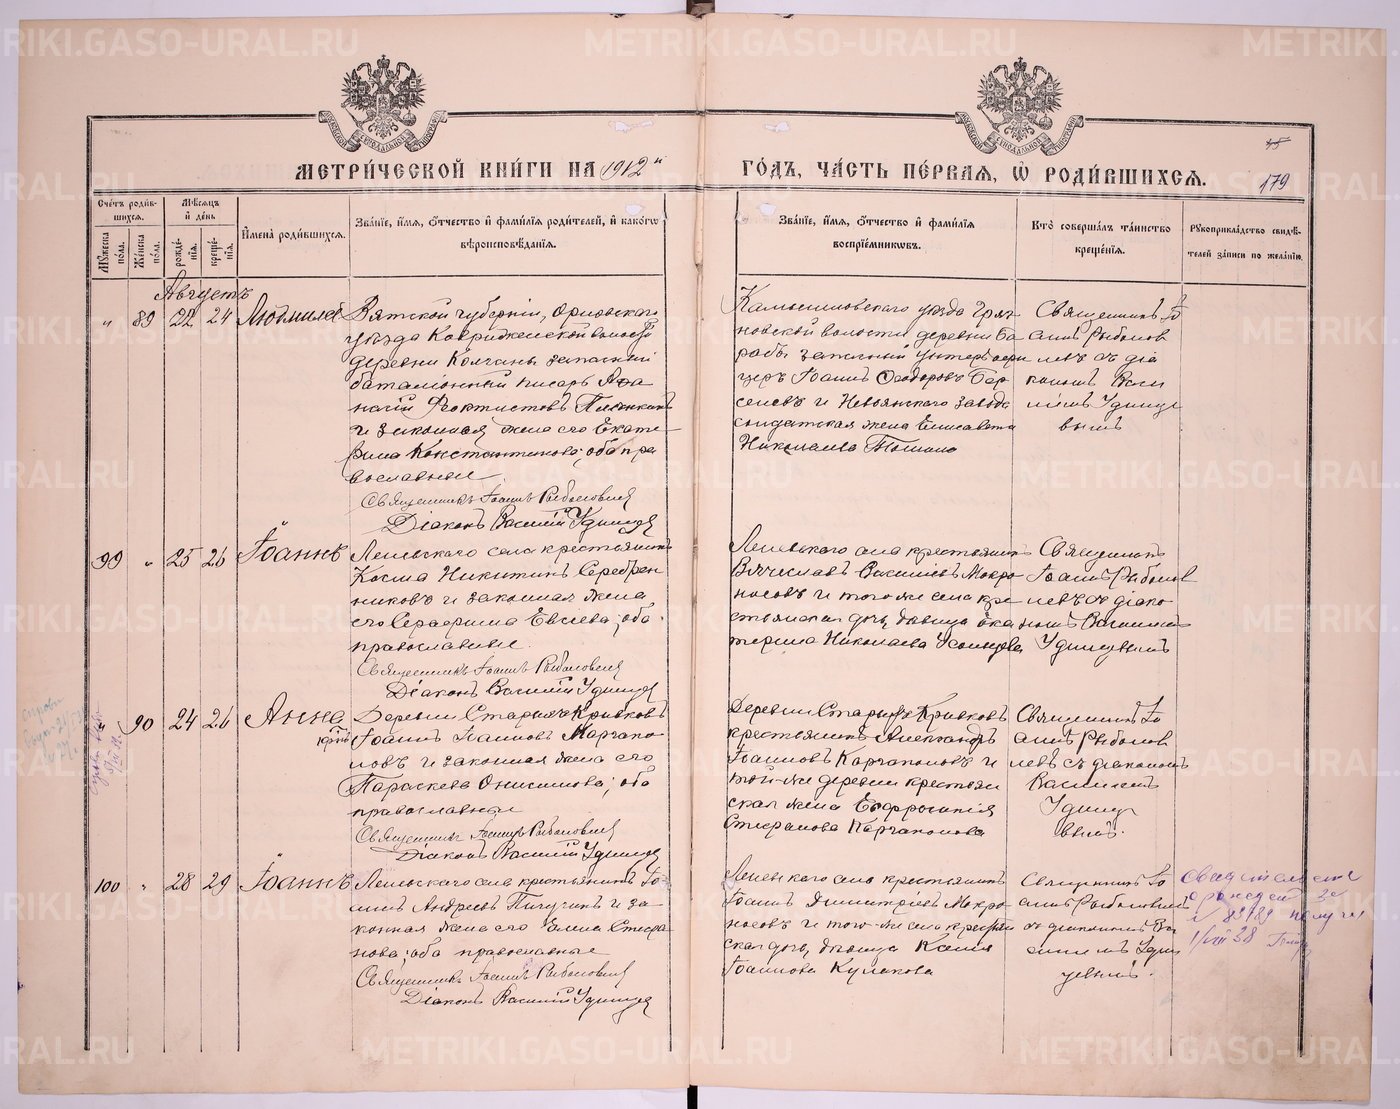 МЕТРИ́ЧЕСКОЙ КНИ́ГИ НА 1912й
ГО́ДЪ, ЧА́СТЬ ПЕ́РВАЯ, Ѡ҆ РОДИ́ВШИХСЯ.
179
Сче́тъ роди́вшихся.
Мꙋ́жеска по́ла.
Же́нска по́ла.
Мѣ́сяцъ и҆ де́нь
рожде́нїя.
креще́нїя.
И҆мена̀ роди́вшихся.
Зва́нїе, и҆́мя, ѻ҆́тчество и҆ фами́лїя роди́телей, и҆ како́гѡ
вѣроисповѣ́данїя.
Зва́нїе, и҆́мя, ѻ҆́тчество и҆ фами́лїя
воспрїе́мниковъ.
Кто̀ соверша́лъ та́инство
креще́нїя.
Рꙋкоприкла́дство свидѣ́телей за́писи по жела́нїю.
Августъ
" 89 22 24 Людмила
Вятской губерніи, Орловскаго
уѣзда Ковриженской волости
деревни Колчаны запасный
баталіонный писарь Аѳа
насій Ѳеоктистовъ
и законная жена его Екате
рина Константинова; оба пра
вославные.
Священникъ Іоаннъ Рыболовлевъ
Діаконъ Василій Удинцевъ
Камышловскаго уѣзда Гряз
новской волости деревни Ба
рабы запасный унтеръ офи
церъ Іоаннъ Ѳеодоровъ Бер
сеневъ и Невьянскаго завода
солдатская жена Елисавета
Николаева
Священникъ Іо
аннъ Рыболов
левъ съ діа
кономъ Васи
ліемъ Удинце
вымъ
99 " 25 26 Іоаннъ
села крестьянинъ
Косма Никитинъ Серебрен
никовъ и законная жена
его Серафима Евсіева; оба
православные.
Священникъ Іоаннъ Рыболовлевъ
Діаконъ Василій Удинцевъ
села крестьянинъ
Вячеславъ Василіевъ Мокро
носовъ и того же села кре
стьянская дочь, дѣвица Ека
терина Николаева
Священникъ
Іоаннъ Рыболов
левъ съ діако
номъ Василіемъ
Удинцевымъ
90 24 26 Анна
Деревни Старыхъ Кривковъ
Іоаннъ Іоанновъ Карчапо
ловъ и законная жена его
Параскева Онисимова; оба
православные
Священникъ Іоаннъ Рыболовлевъ
Діаконъ Василій Удинцевъ
Деревни Старыхъ Кривковъ
крестьянинъ Александръ
Іоанновъ Карчаполовъ и
той-же деревни крестьян
ская жена Евфросинія
Стефанова Карчаполова
Священникъ Іо
аннъ Рыболов
левъ съ діакономъ
Василіемъ
Удинце
вымъ.
100 " 28 29 Іоаннъ
села крестьянинъ Іо
аннъ Андреевъ Пичугинъ и за
конная жена его Елена Стефа
нова; оба православные
Священникъ Іоаннъ Рыболовлевъ
Діаконъ Василій Удинцевъ
села крестьянинъ
Іоаннъ Димитріевъ Мокро
носовъ и того-же села крестьян
ская дочь, дѣвица Ксенія
Іоаннова Кулакова
Священникъ Іо
аннъ Рыболовлевъ
съ діакономъ Ва
силіемъ Удин
цевымъ.
METRIKI.GASO-URAL.RU